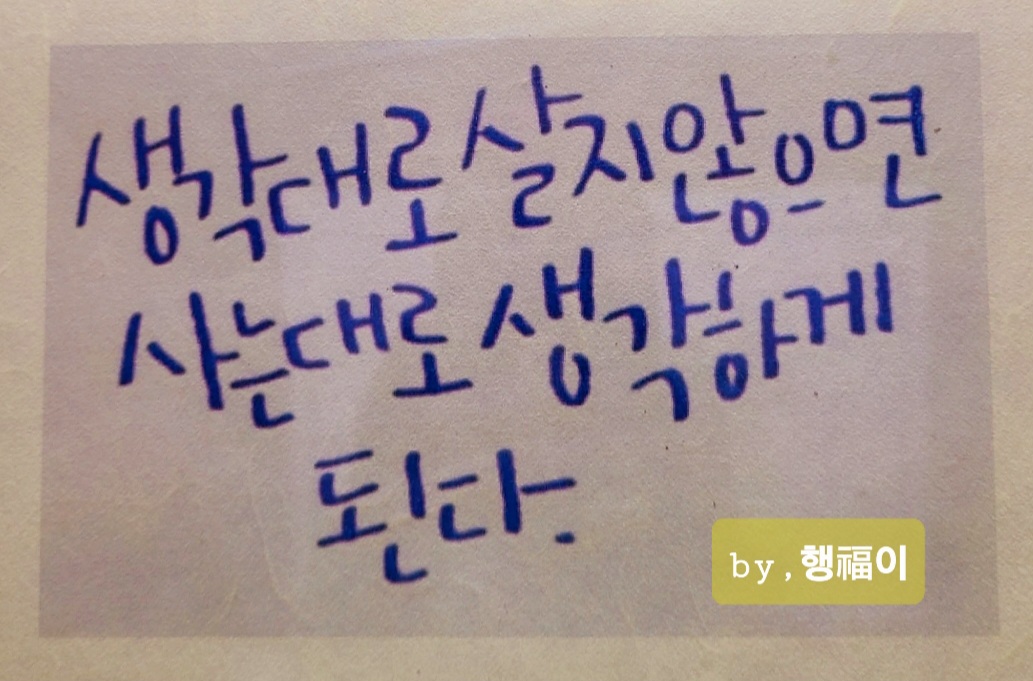 생각대로 살지 않으면
사는대로 생각하게
된다.
by,행福이